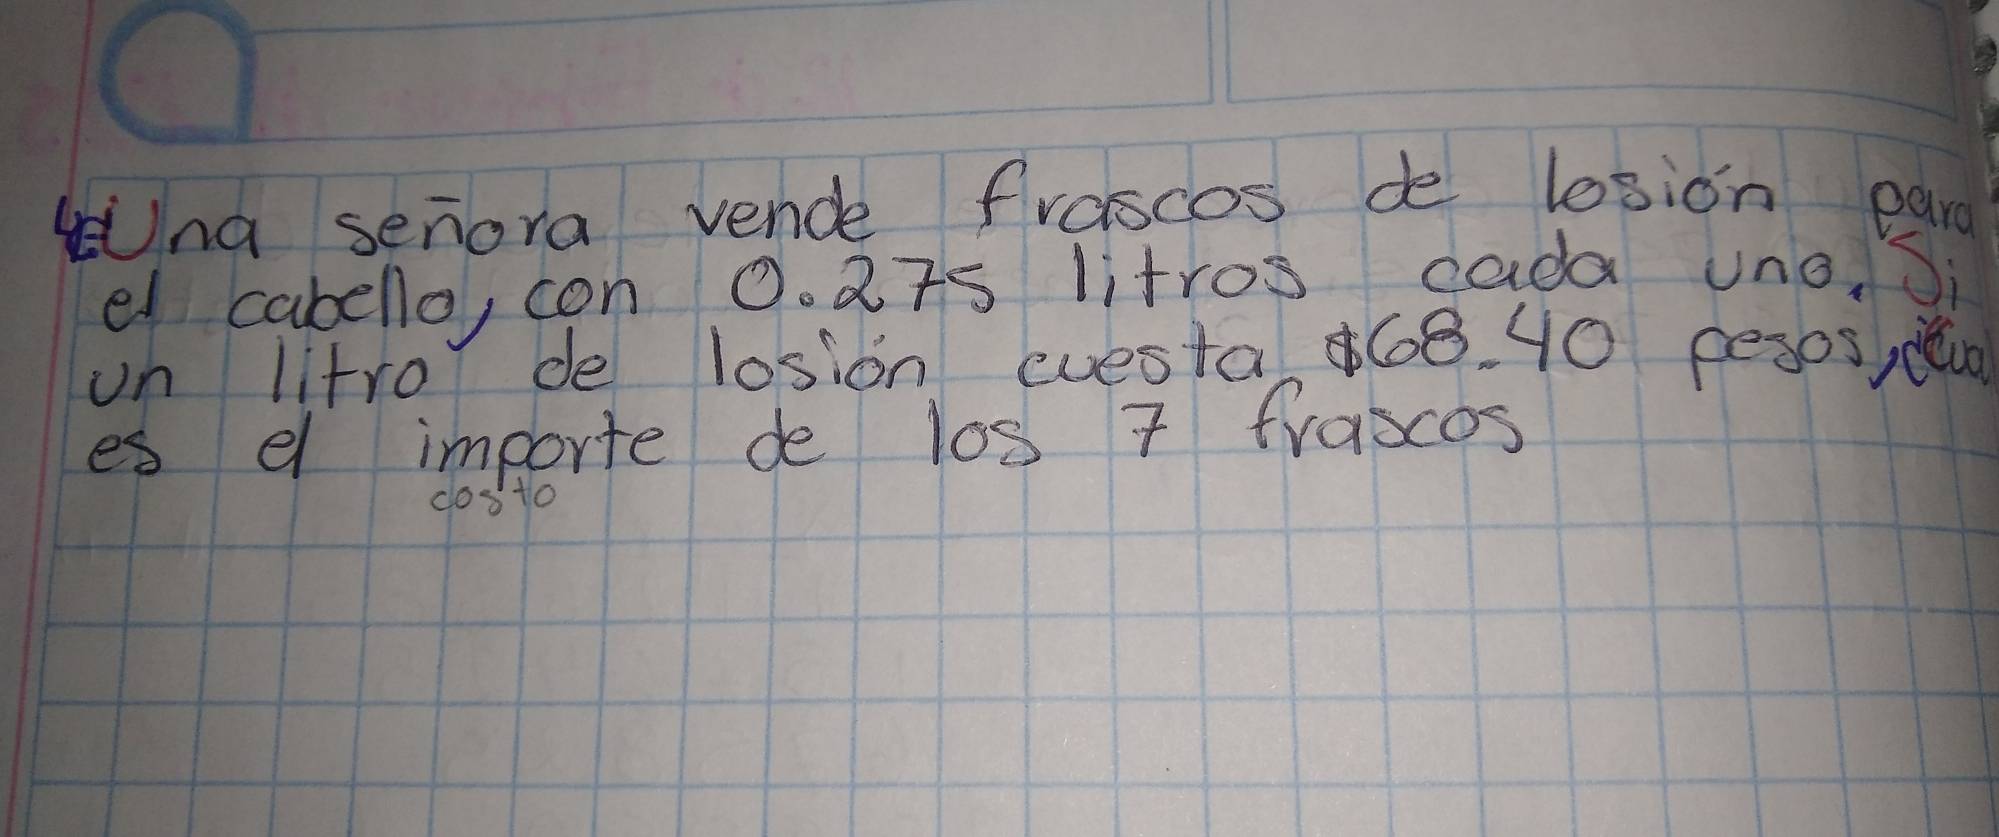 Una señora vende frascos de losión para
el cabello, con 0.275 litros cada uno. Si
un litro de losión cuesta $68.40 pesos, ¿cual
es el importe de los 7 frascos
costo